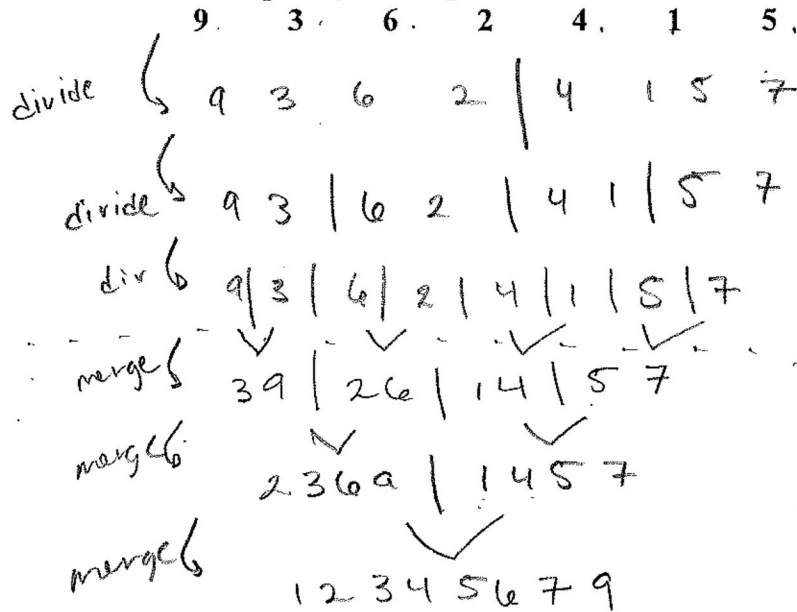 9. 3. 6. 2 4. 1 5.
divide 9 3 6 2 | 4 1 5 7
divide 9 3 | 6 2 | 4 1 | 5 7
div 9 | 3 | 6 | 2 | 4 | 1 | 5 | 7
merge 3 9 | 2 6 | 1 4 | 5 7
merge 2 3 6 9 | 1 4 5 7
merge 1 2 3 4 5 6 7 9